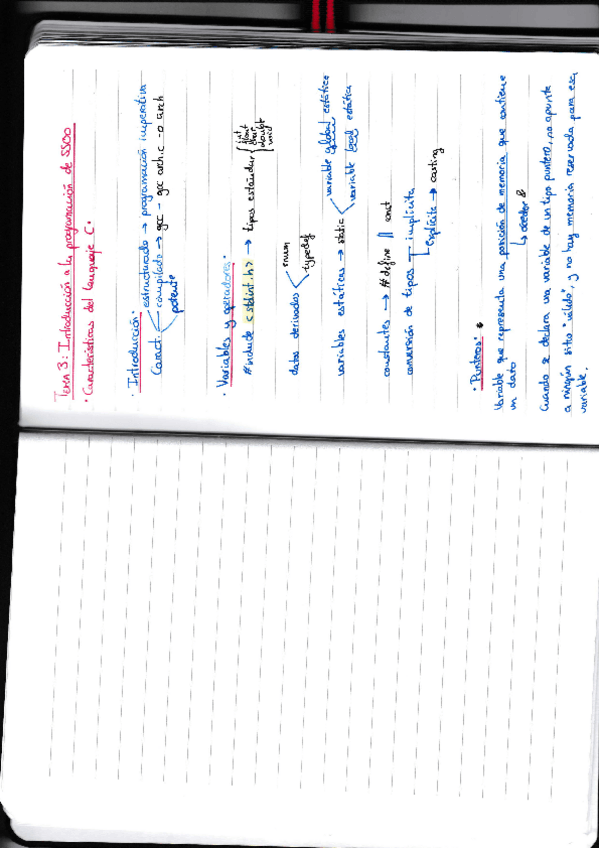 Tema 3: Introducción a la programación de SSOO
· Características del lenguaje C·
· Introducción·
Caract. estructurado → programación imperativa
compilado → gcc - gcc arch.c -o arch
potente
· Variables y operadores·
#include <stdint.h> → tipos estándar { int
float
char
double
void
datos derivados enum
typedef
variables estáticas → static variable global estática
variable local estática
constantes → #define // const
conversión de tipos implícita
explícita → casting
· Punteros·
Variable que representa una posición de memoria que contiene
un dato
↳ acceder &
Cuando se declara una variable de un tipo puntero, no apunta
a ningún sitio "válido", y no hay memoria reservada para esa
variable.